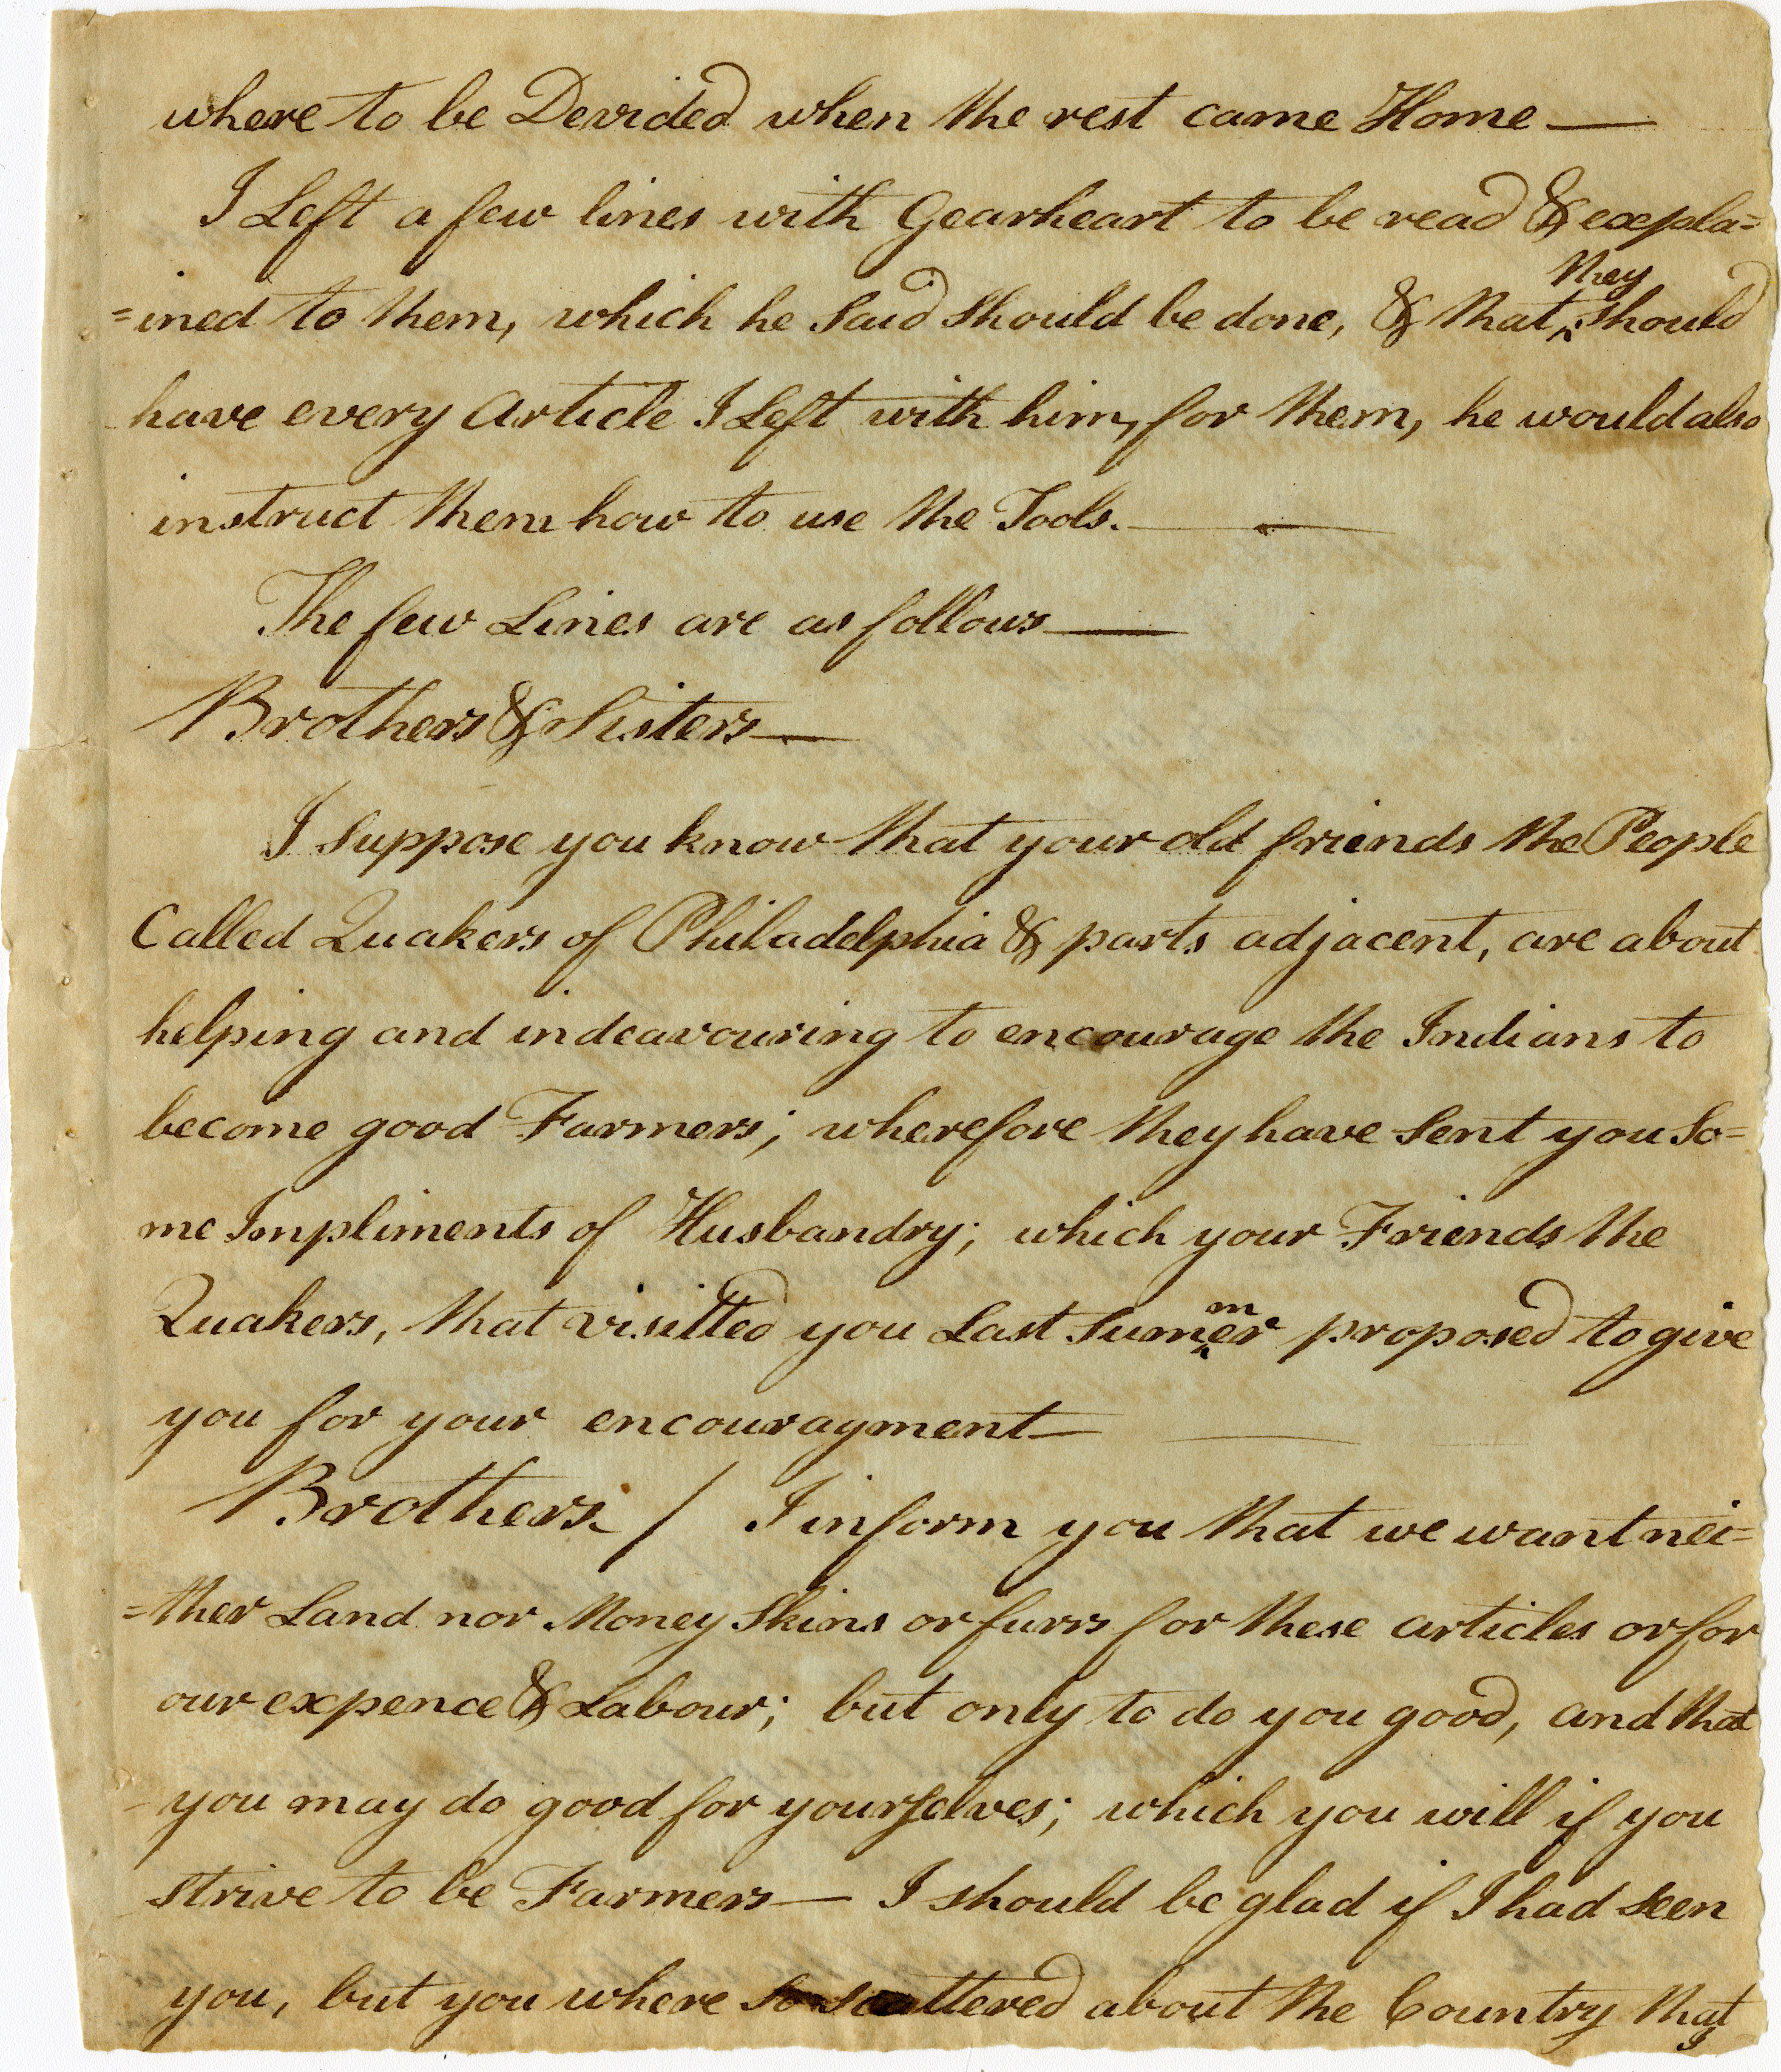 where to be Devided when the rest came Home —
I Left a few lines with Gearheart to be read & expla=
=ined to them, which he Said Should be done, & that ^they should
have every Article I Left with him, for them, he would also
instruct them how to use the Tools. — —
The few Lines are as follows —
Brothers & Sisters —
I Suppose you know that your old friends the People
Called Quakers of Philadelphia & parts adjacent, are about
helping and indeavouring to encourage the Indians to
become good Farmers; wherefore they have Sent you So=
me Impliments of Husbandry; which your Friends the
Quakers, that visitted you Last Sum^mer proposed to give
you for your encouragment —
Brothers / I inform you that we want nei=
=ther Land nor Money Skins or furrs for these articles or for
our expence & Labour; but only to do you good, and that
you may do good for yourselves; which you will if you
strive to be Farmers — I should be glad if I had seen
you, but you where so scattered about the Country that